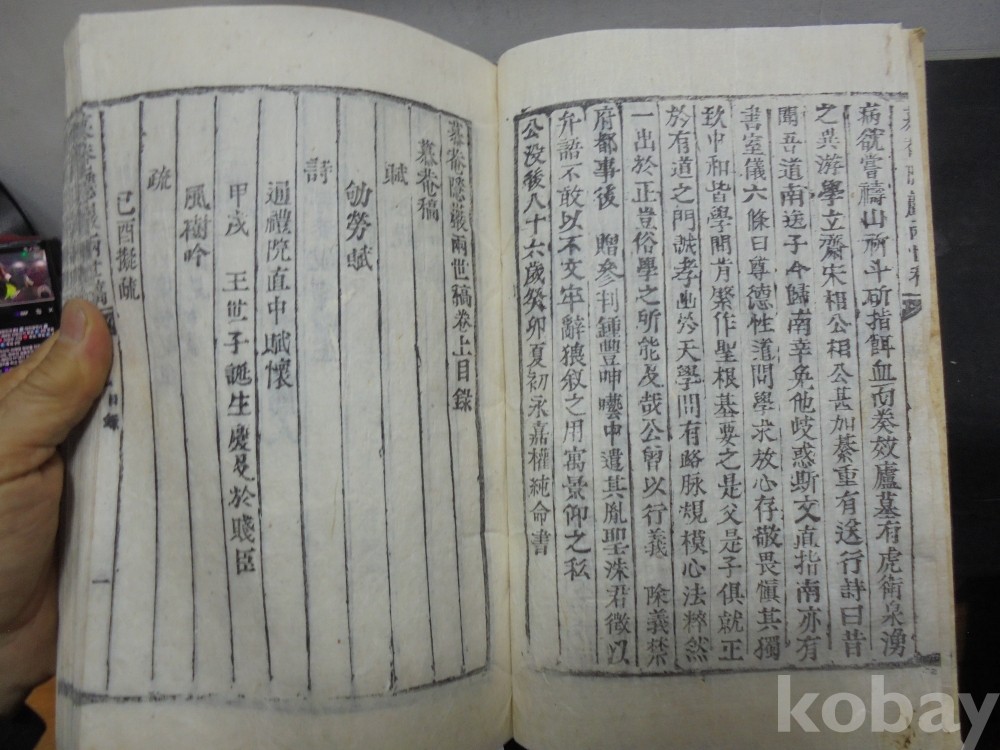 病欲嘗禱山祈斗斫指餌血而奏效廬墓有虎衛泉湧
之異游學立齋宋相公相公甚加綦重有送行詩曰昔
聞吾道南送子今歸南幸免他歧惑斯文直指南亦有
書室儀六條曰尊德性道問學求放心存敬畏愼其獨
致中和皆學問肯綮作聖根基要之是父是子俱就正
於有道之門誠孝出於天學問有路脉規模心法粹然
一出於正豈俗學之所能及哉公曾以行義 除義禁
府都事後 贈參判鍾豐呻囈中遣其胤聖洙君徵以
弁語不敢以不文牢辭猥敘之用寓景仰之私
公沒後八十六歲癸卯夏初永嘉權純命書
慕菴隱巖兩世稿卷上目錄
慕菴稿
賦
劬勞賦
詩
通禮院直中賦懷
甲戌 王世子誕生慶及於賤臣
風樹吟
疏
己酉擬疏
目錄
一
kobay